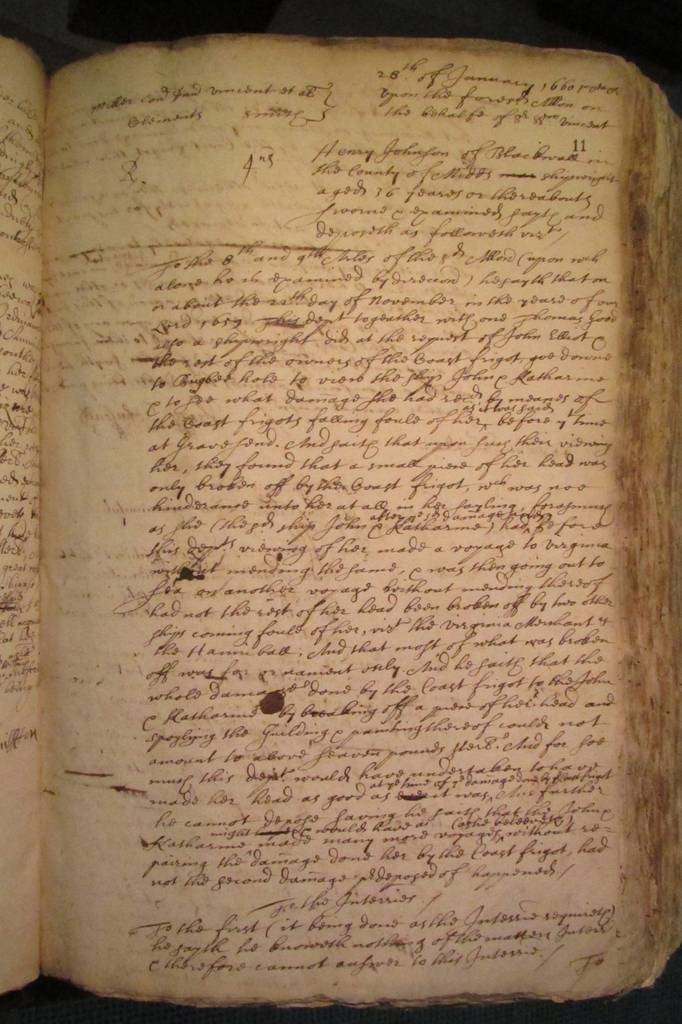 28th of January 1660
upon the foresd Allon on
the behalfe of the sd Vincent
Clements
11
2.
4us
Henry Johnson of Blackwall in
the County of Midds shipwright
aged 36 yeares or thereabouts
sworne & examined sayth and
deposeth as followeth vizt/
To the 8th and 9th Arles of the sd Allon (upon wch
alone he is examined by direccon) he sayth that on
or about the day of November in the yeare of our
Lord 1659 this dept togeather with one Thomas Good
also a shipwright did at the request of John Elliot &
the rest of the owners of the Coast frigot, goe downe
to Bugbies hole to view the ship John & Katharine
& to see what damage she had recd by meanes of
as it was said
the Coast frigots falling foule of her, before yt time
at Gravesend. And saith that upon such their viewing
her, they found that a small piece of her head was
only broken off by the Coast frigot, wch was noe
hinderance unto her at all in her sayling, forasmuch
as she (the sd ship John & Katharine) had, before
after ye sd damage
this depts viewing of her made a voyage to Virginia
without mending the same, & was then going out to
sea on another voyage without mending thereof
had not the rest of her head been broken off by two other
ships coming foule of her, vizt the Virginia Merchant &
the Hanniball, And that most of what was broken
off was for ornament only And he saith that the
whole damage done by the Coast frigot to the John
& Katharine by breaking off a piece of her head and
spoyling the Guilding & painting thereof could not
amount to above seaven pounds sterl. And for soe
much this dept would have undertaken to have
at ye time of ye damage done by Coast frigot
made her head as good as it was, And further
he cannot depose saving he saith that the John &
Katharine might & would have made many more voyages, without re=
(as he beleeveth)
pairing the damage done her by the Coast frigot, had
not the second damage predeposed of happened/
To the Interries/
To the first (it being done as the Interrie requireth)
he sayth he knoweth nothing of the matter Interr
& therefore cannot answer to this Interrie./
To